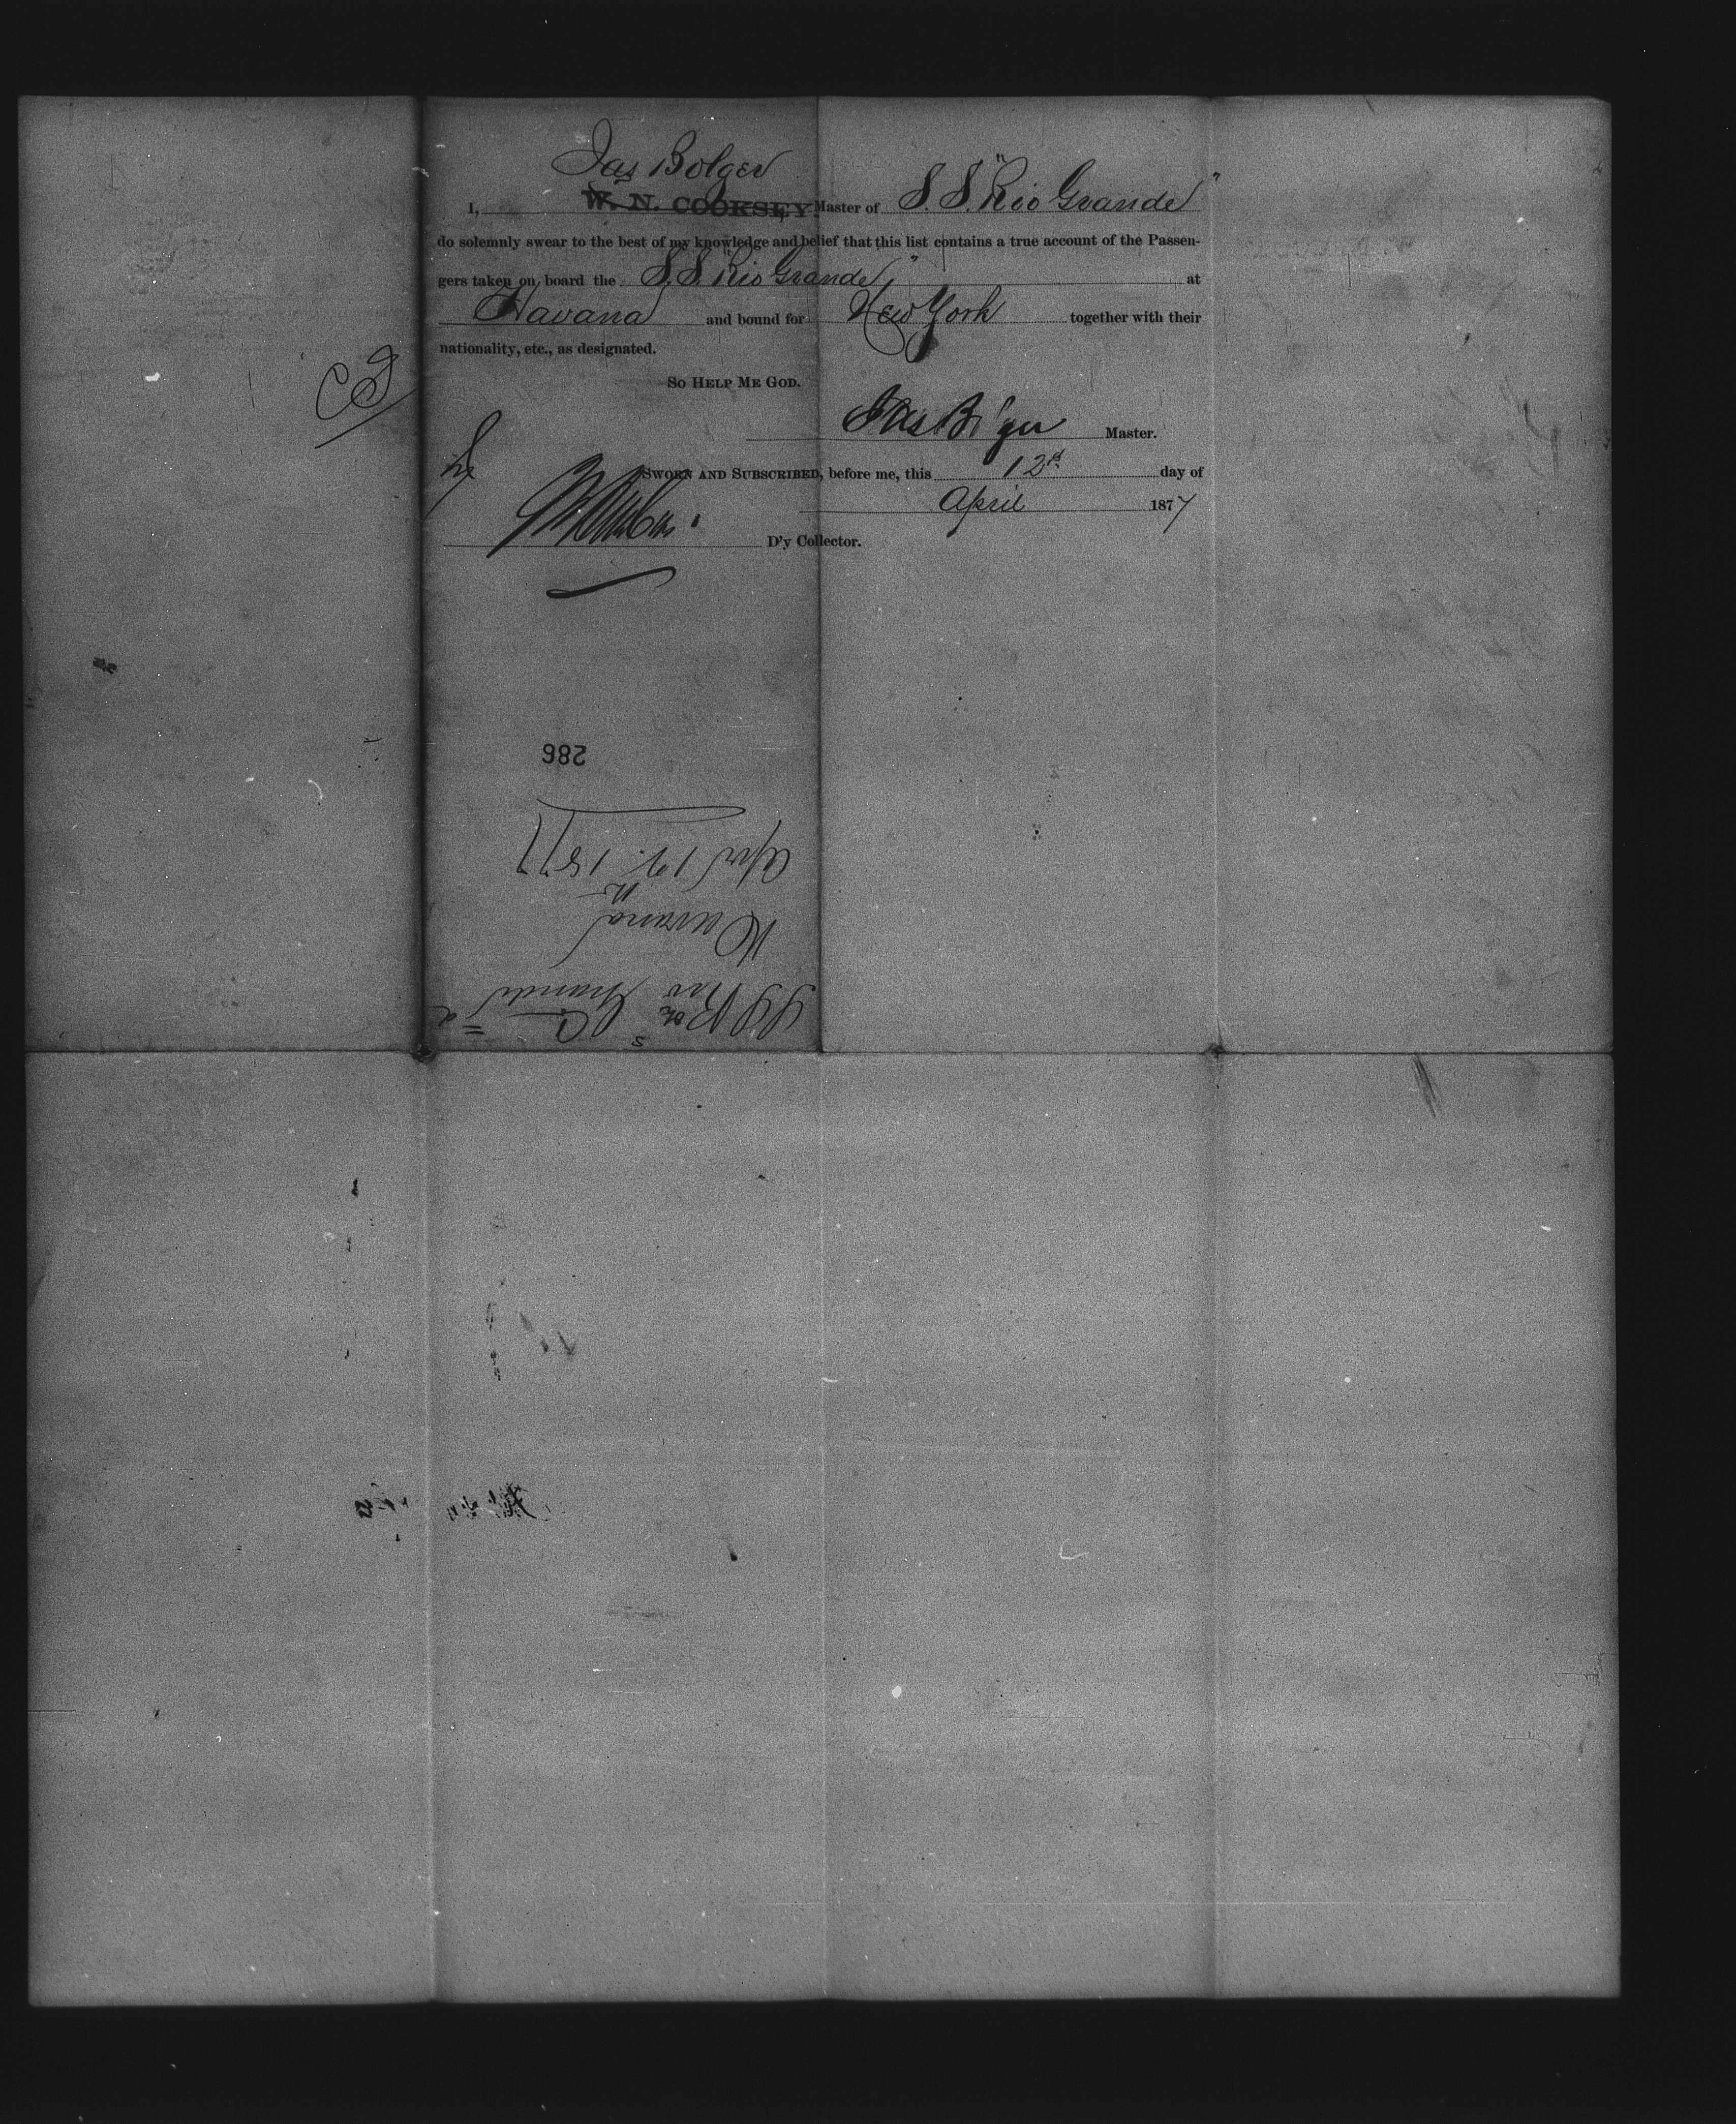 Jas Bolger
I, W. N. COOKSEY, Master of S. S. "Rio Grande"
do solemnly swear to the best of my knowledge and belief that this list contains a true account of the Passen-
gers taken on board the S. S. "Rio Grande" at
Havana and bound for New York together with their
nationality, etc., as designated.
SO HELP ME GOD.
Jas Bolger Master.
SWORN AND SUBSCRIBED, before me, this 12th day of
April 1877
D'y Collector.
286
S S Rio Grande
Havana
April 12. 1877